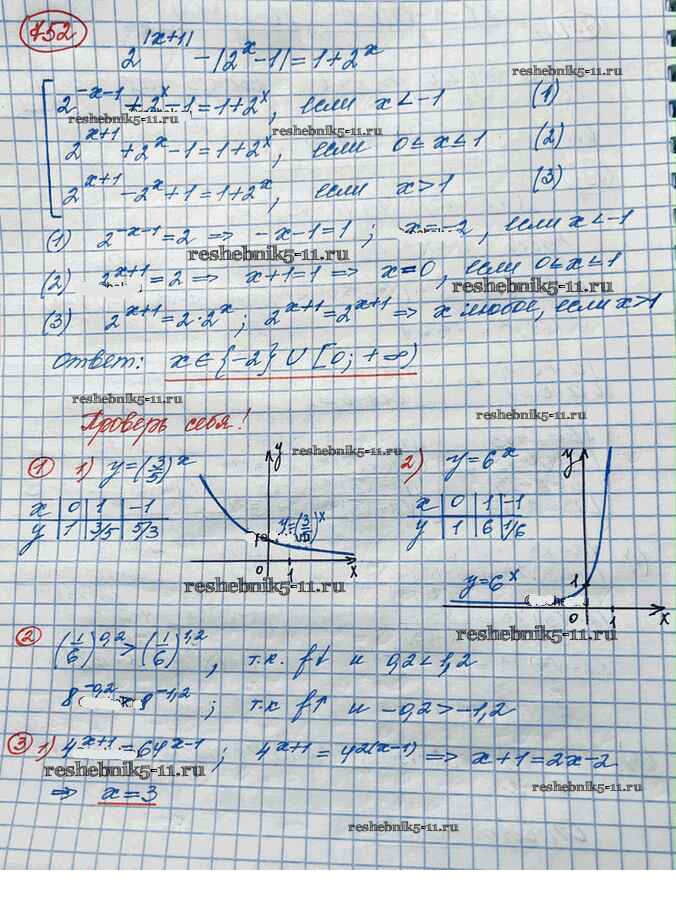 752
2^|x+1| - |2^x - 1| = 1 + 2^x
reshebnik5-11.ru
2^(-x-1) + 2^x - 1 = 1 + 2^x, если x < -1 (1)
reshebnik5-11.ru reshebnik5-11.ru
2^(x+1) + 2^x - 1 = 1 + 2^x, если 0 ≤ x ≤ 1 (2)
2^(x+1) - 2^x + 1 = 1 + 2^x, если x > 1 (3)
(1) 2^(-x-1) = 2 ⇒ -x-1 = 1; x = -2, если x < -1
reshebnik5-11.ru
(2) 2^(x+1) = 2 ⇒ x+1 = 1 ⇒ x = 0, если 0 ≤ x ≤ 1
reshebnik5-11.ru
(3) 2^(x+1) = 2·2^x; 2^(x+1) = 2^(x+1) ⇒ x любое, если x > 1
Ответ: x ∈ {-2} ∪ [0; +∞)
reshebnik5-11.ru
reshebnik5-11.ru
Проверь себя!
reshebnik5-11.ru
1 1) y = (3/5)^x
x 0 1 -1
y 1 3/5 5/3
y
y = (3/5)^x
1
0 1 x
reshebnik5-11.ru
2) y = 6^x
x 0 1 -1
y 1 6 1/6
y
y = 6^x
1
0 1 x
reshebnik5-11.ru
2 (1/6)^0,2 > (1/6)^1,2, т.к. f↓ и 0,2 < 1,2
8^-0,2 8^-1,2; т.к f↑ и -0,2 > -1,2
3 1) 4^(x+1) = 64^(x-1); 4^(x+1) = 4^2(x-1) ⇒ x+1 = 2x-2
reshebnik5-11.ru reshebnik5-11.ru
⇒ x = 3
reshebnik5-11.ru